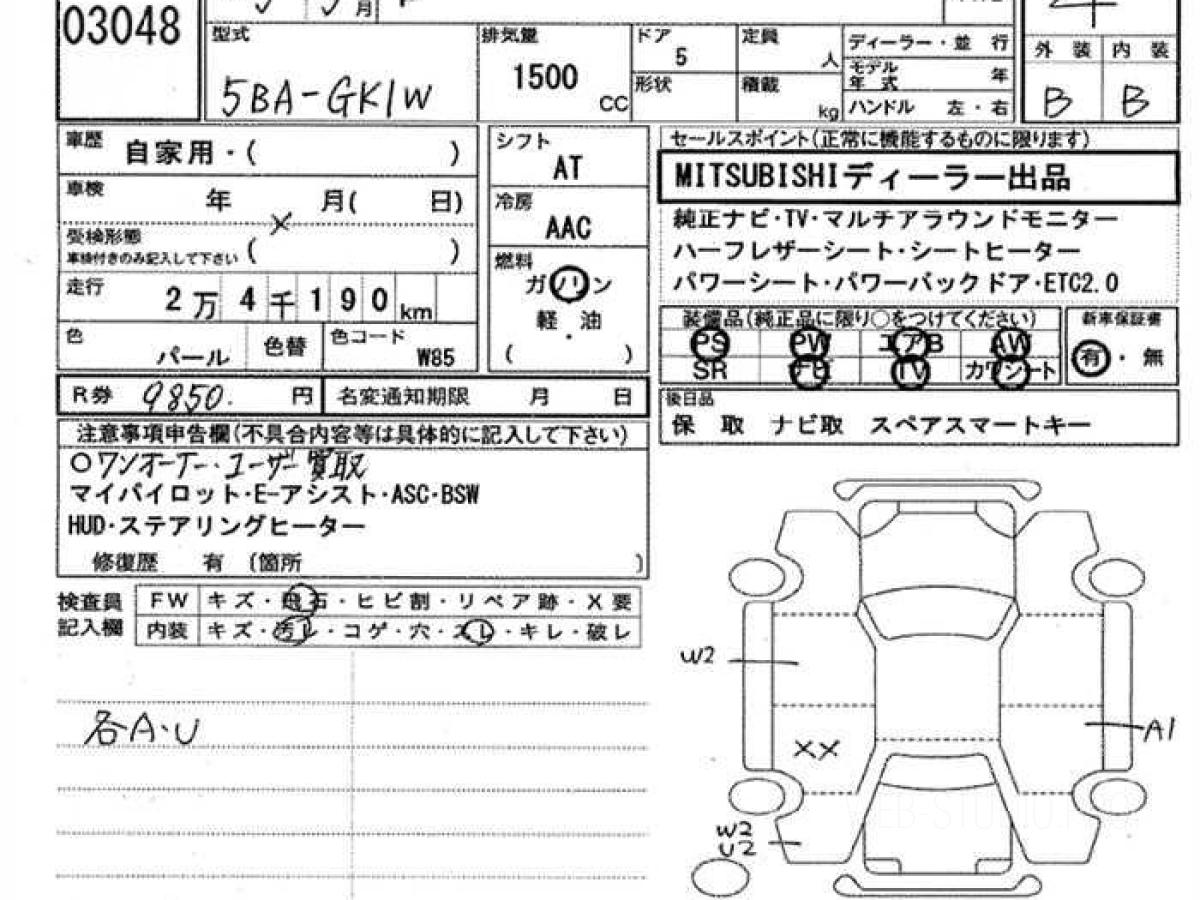 03048
月
型式
5BA-GK1W
排気量
1500
CC
ドア
5
形状
定員
人
積載
kg
ディーラー・並 行
モデル
年 式
年
ハンドル 左・右
外 装
内 装
B
B
車歴
自家用・( )
車検
年 月( 日)
×
受検形態
車検付きのみ記入して下さい
( )
走行
2万4千190km
色
パール
色替
色コード
W85
R券 9850. 円
名変通知期限 月 日
シフト
AT
冷房
AAC
燃料
ガソリン
軽・油
( )
セールスポイント(正常に機能するものに限ります)
MITSUBISHIディーラー出品
純正ナビ・TV・マルチアラウンドモニター
ハーフレザーシート・シートヒーター
パワーシート・パワーバックドア・ETC2.0
装備品(純正品に限り○をつけてください)
PS PW エアB AW
SR ナビ TV カワシート
新車保証書
有・無
後日品
保 取 ナビ取 スペアスマートキー
注意事項申告欄(不具合内容等は具体的に記入して下さい)
○ワンオーナー・ユーザー買取
マイパイロット・E-アシスト・ASC・BSW
HUD・ステアリングヒーター
修復歴 有 〔箇所 〕
検査員
記入欄
FW キズ・飛石・ヒビ割・リペア跡・X要
内装 キズ・汚レ・コゲ・穴・スレ・キレ・破レ
各A・U
W2
XX
A1
W2
U2